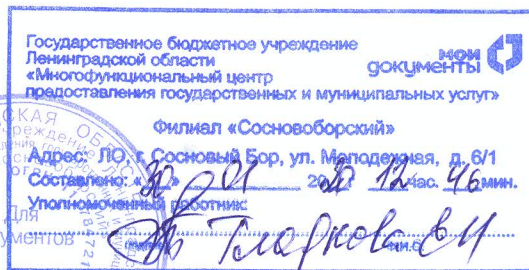 Государственное бюджетное учреждение
Ленинградской области
«Многофункциональный центр
предоставления государственных и муниципальных услуг»
мои
документы
Филиал «Сосновоборский»
Адрес: ЛО, г. Сосновый Бор, ул. Молодежная, д. 6/1
Составлено: «30» 01 2020 12 час. 46 мин.
Уполномоченный работник:
Для